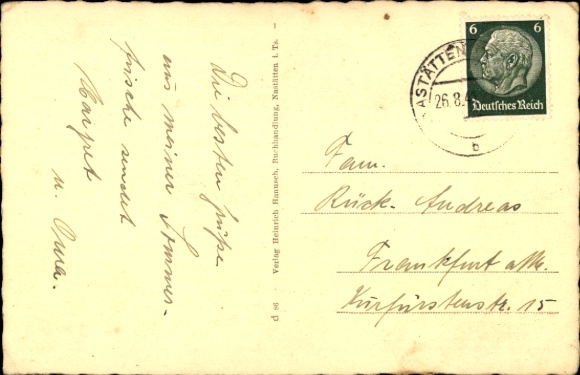 Die besten Grüße
aus meiner Sommer-
frische sendet
Margret
u. Oma.
d 86 · Verlag Heinrich Hanusch, Buchhandlung, Nastätten i. Ts.
6 6
Deutsches Reich
NASTÄTTEN
26.8.4
b
Fam.
Rück-Andreas
Frankfurt a/M.
Kurfürstenstr. 15